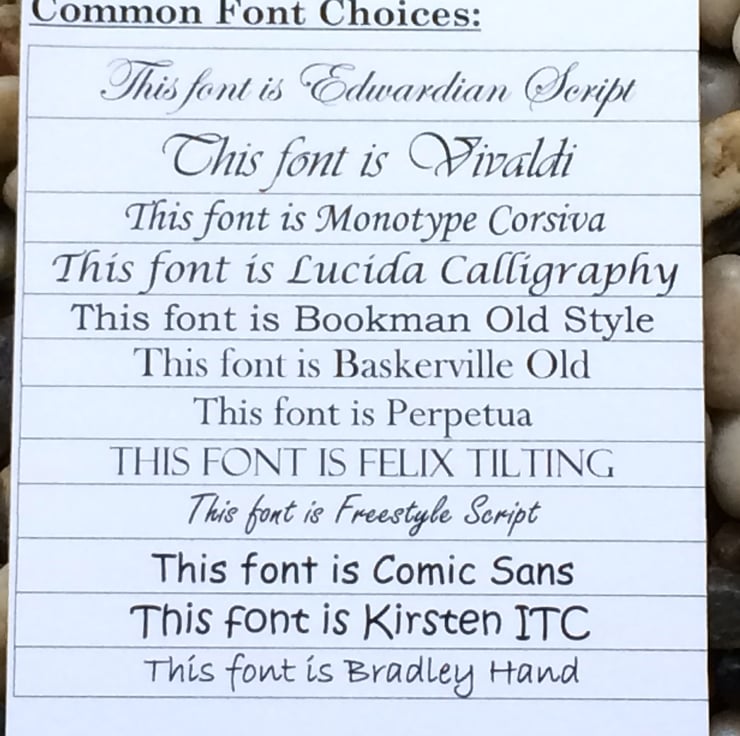 Common Font Choices:
This font is Edwardian Script
This font is Vivaldi
This font is Monotype Corsiva
This font is Lucida Calligraphy
This font is Bookman Old Style
This font is Baskerville Old
This font is Perpetua
THIS FONT IS FELIX TILTING
This font is Freestyle Script
This font is Comic Sans
This font is Kirsten ITC
This font is Bradley Hand